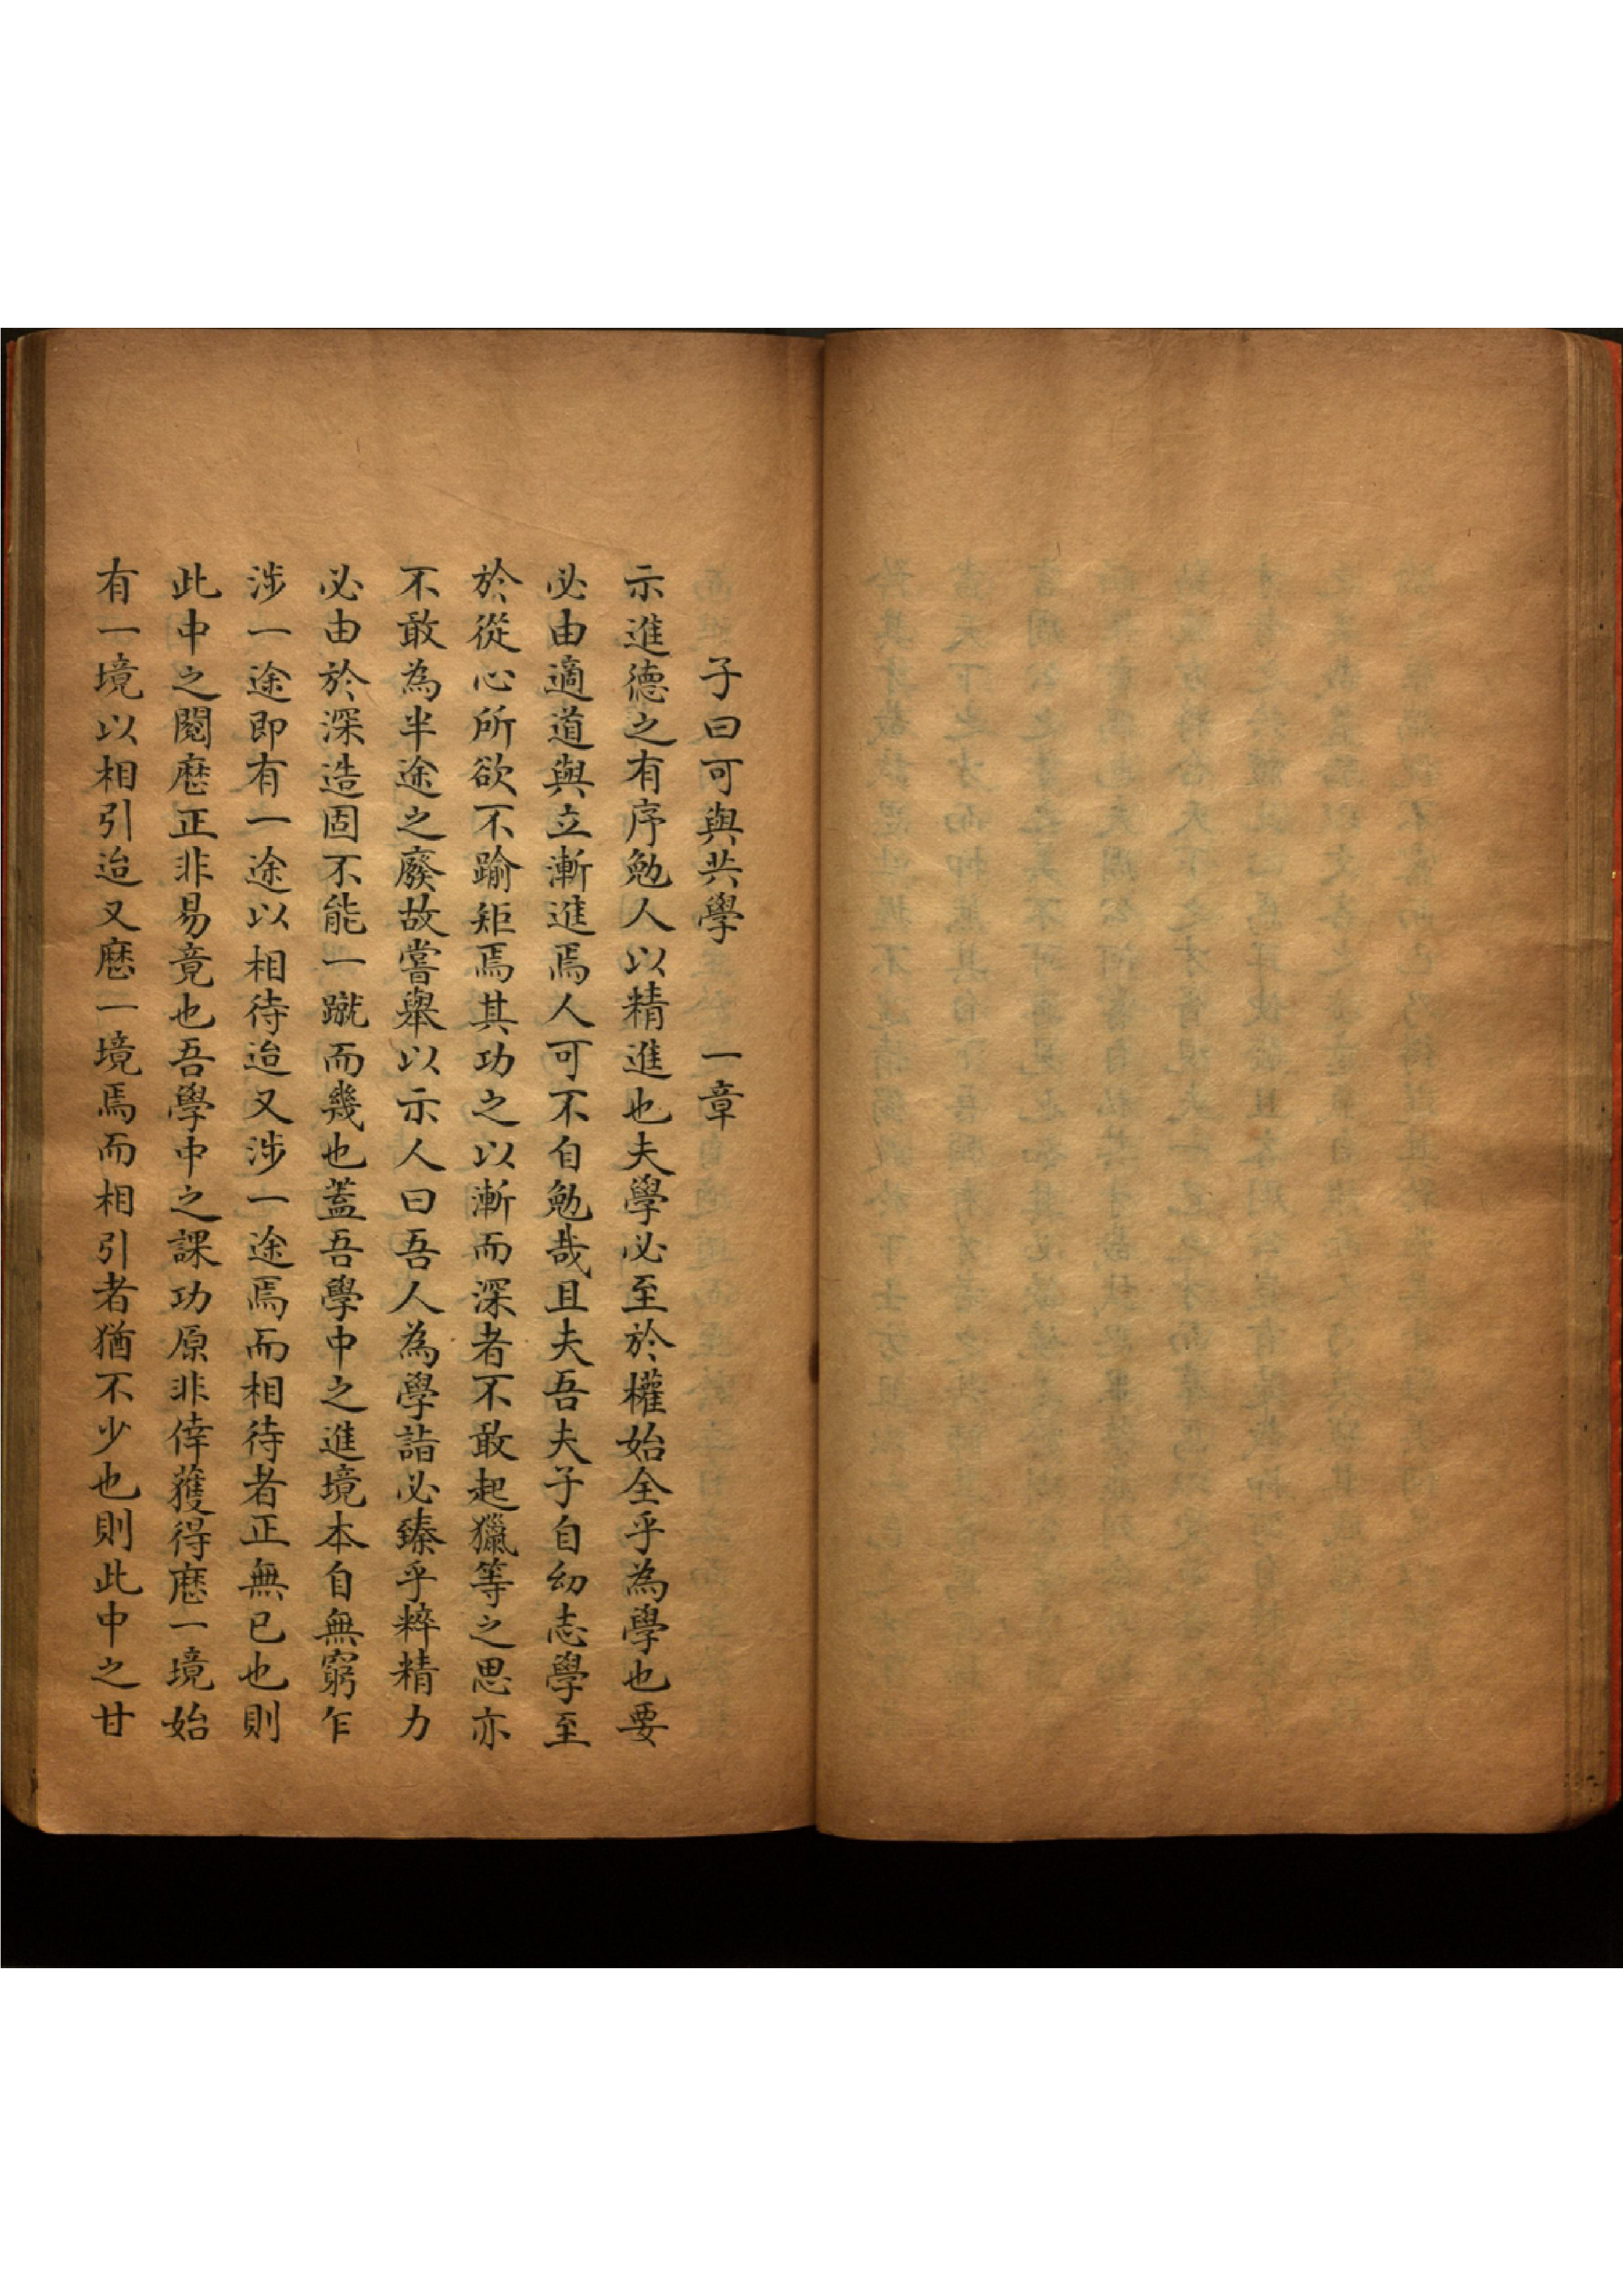 子曰可與共學　一章
示進德之有序勉人以精進也夫學必至於權始全乎為學也要
必由適道與立漸進焉人可不自勉哉且夫吾夫子自幼志學至
於從心所欲不踰矩焉其功之以漸而深者不敢起獵等之思亦
不敢為半途之廢故嘗舉以示人曰吾人為學詣必臻乎粹精力
必由於深造固不能一蹴而幾也蓋吾學中之進境本自無窮乍
涉一途即有一途以相待迨又涉一途焉而相待者正無已也則
此中之閱歷正非易竟也吾學中之課功原非倖獲得歷一境始
有一境以相引迨又歷一境焉而相引者猶不少也則此中之甘